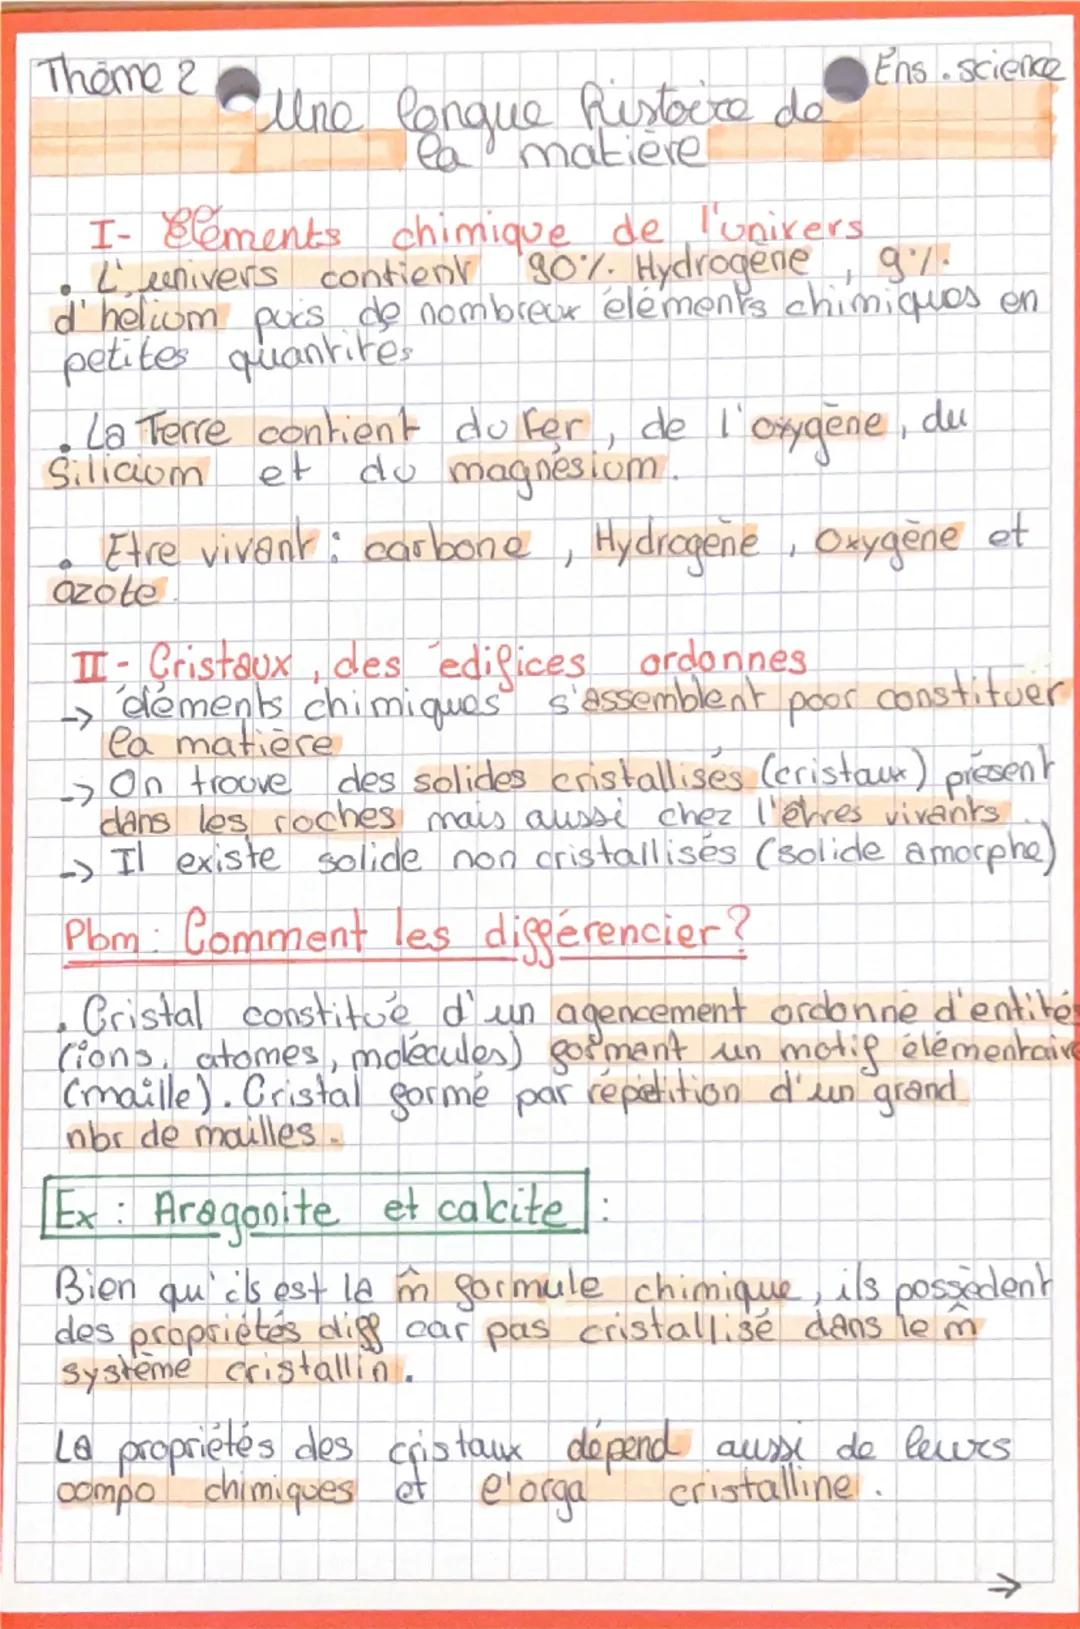 Thème 2
Ens. science
Une longue histoire de
la matière
I- Eléments chimique de l'univers
• L'univers contient 90%. Hydrogène, 9%.
d'helium puis de nombreux éléments chimiques en
petites quantites
• La Terre contient du Fer, de l'oxygène, du
Silicium et du magnésium.
• Etre vivant : carbone, Hydrogène, Oxygène et
azote.
II- Cristaux, des édifices ordonnes
-> éléments chimiques s'assemblent pour constituer
la matière
-> On trouve des solides cristallisés (cristaux) présent
dans les roches mais aussi chez l'êtres vivants.
-> Il existe solide non cristallisés (solide amorphe)
Pbm: Comment les différencier?
• Cristal constitué d'un agencement ordonné d'entités
(ions, atomes, molécules) formant un motif élémentaire
(maille). Cristal formé par répétition d'un grand
nbr de mailles.
Ex : Aragonite et calcite :
Bien qu'ils est la m̂ formule chimique, ils possèdent
des propriétés diff car pas cristallisé dans le m̂
système cristallin.
La propriétés des cristaux dépend aussi de leurs
compo chimiques et l'orga cristalline.
→